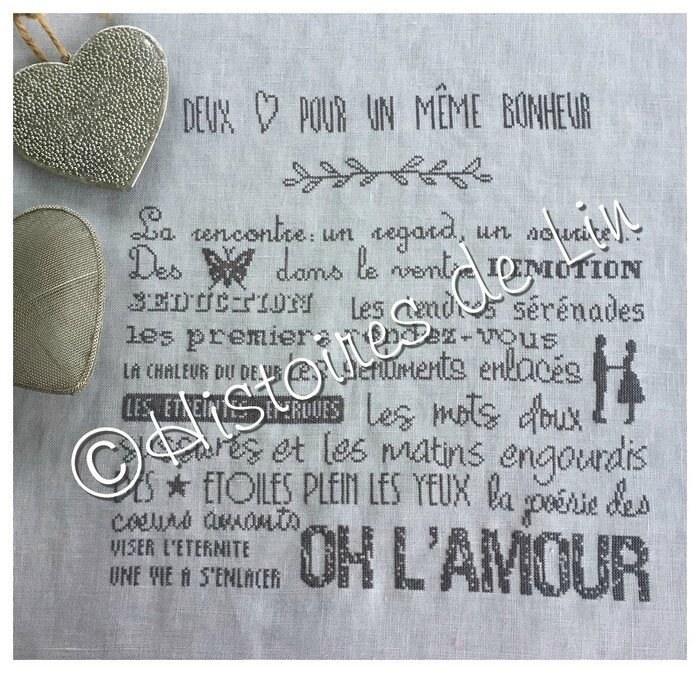 DEUX ♡ POUR UN MÊME BONHEUR
La rencontre: un regard, un sourire...
Des dans le ventre L'EMOTION
SEDUCTION les tendres sérénades
les premiers rendez-vous
LA CHALEUR DU Les sentiments enlacés
LES ETREINTES
les mots doux
murmurés et les matins engourdis
DES ★ ETOILES PLEIN LES YEUX la poésie des
coeurs aimants
VISER L'ETERNITE
UNE VIE A S'ENLACER OH L'AMOUR
©Histoires de Lin